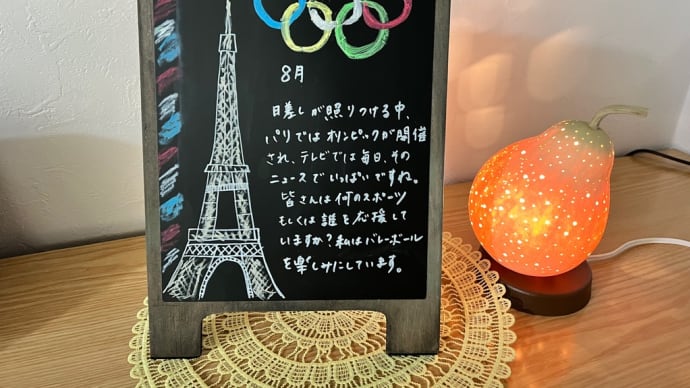 8月
日差しが照りつける中、
パリではオリンピックが開催
され、テレビでは毎日、その
ニュースでいっぱいですね。
皆さんは何のスポーツ
もしくは誰を応援して
いますか？私はバレーボール
を楽しみにしています。